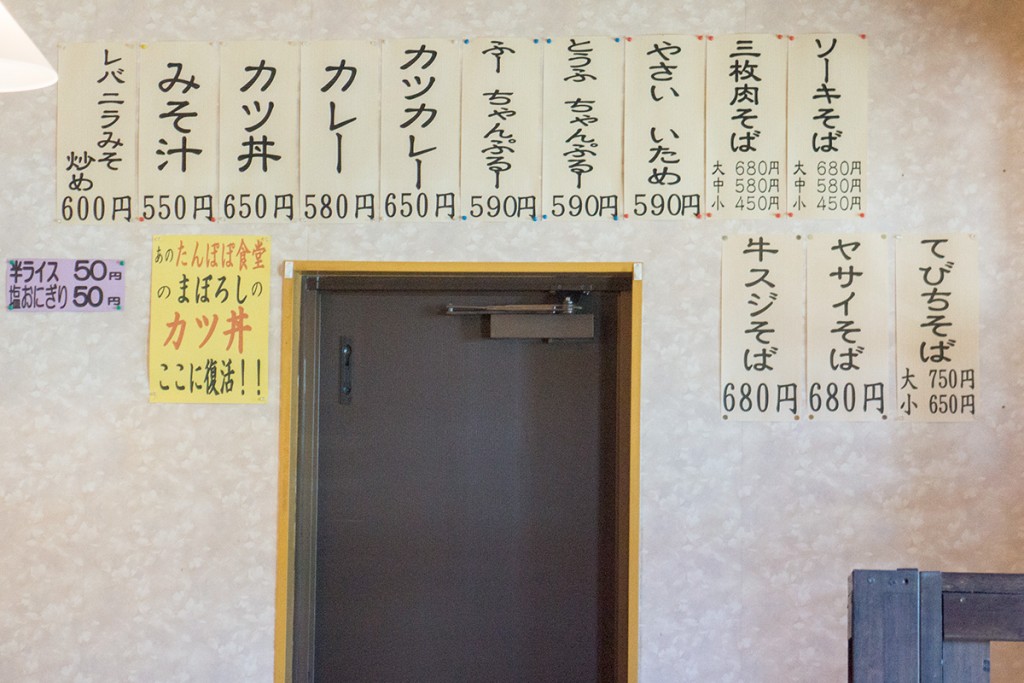 ソーキそば
大 680円
中 580円
小 450円
三枚肉そば
大 680円
中 580円
小 450円
やさい いため
590円
とうふ ちゃんぷるー
590円
ふー ちゃんぷるー
590円
カツカレー
650円
カレー
580円
カツ丼
650円
みそ汁
550円
レバニラみそ
炒め
600円
てびちそば
大 750円
小 650円
ヤサイそば
680円
牛スジそば
680円
あのたんぽぽ食堂
のまぼろしの
カツ丼
ここに復活！！
半ライス 50円
塩おにぎり 50円